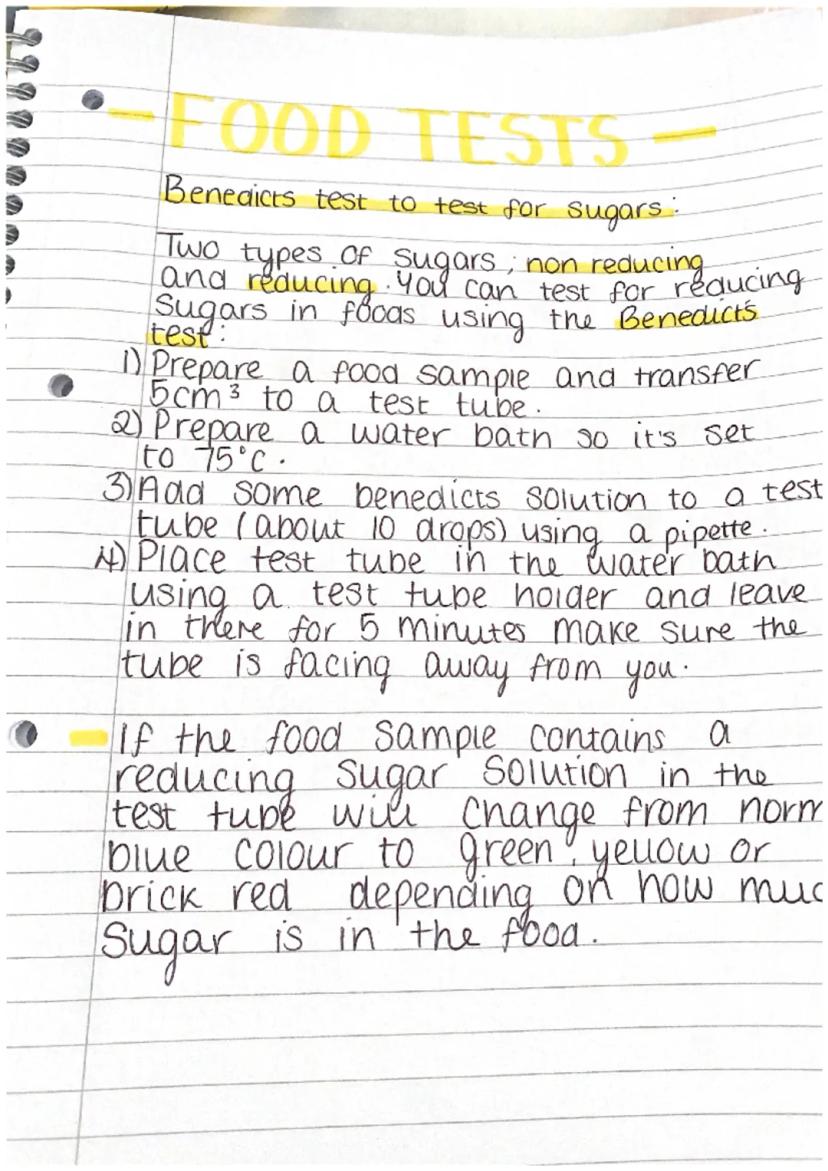 - FOOD TESTS -
Benedicts test to test for sugars:
Two types of sugars, non reducing
and reducing. You can test for reducing
sugars in foods using the Benedict's
test:
1) Prepare a food sample and transfer
5cm³ to a test tube.
2) Prepare a water bath so it's set
to 75°C.
3) Add some benedicts solution to a test
tube (about 10 drops) using a pipette.
4) Place test tube in the water bath
using a test tube holder and leave
in there for 5 minutes make sure the
tube is facing away from you.
- If the food sample contains a
reducing sugar solution in the
test tube will change from norm
blue colour to green, yellow or
brick red depending on how muc
sugar is in the food.